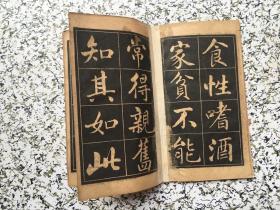 食性嗜酒
家貧不能
常得親舊
知其如此